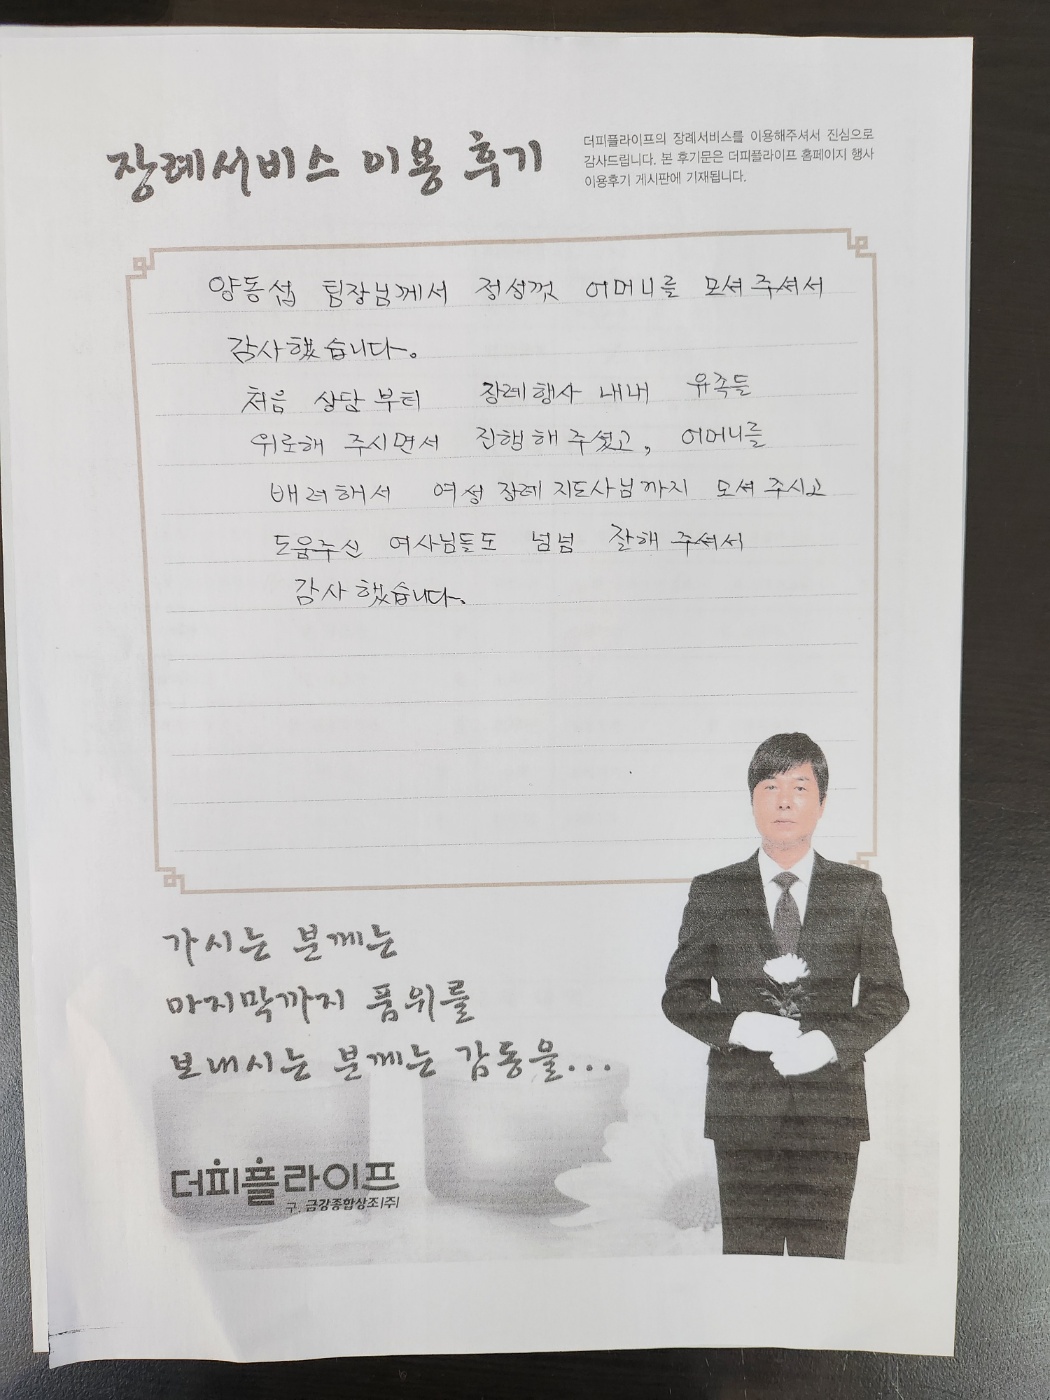 장례서비스 이용 후기
더피플라이프의 장례서비스를 이용해주셔서 진심으로
감사드립니다. 본 후기문은 더피플라이프 홈페이지 행사
이용후기 게시판에 기재됩니다.
양동섭 팀장님께서 정성껏 어머니를 모셔주셔서
감사했습니다.
처음 상담부터 장례행사 내내 유족들
위로해 주시면서 진행해주셨고, 어머니를
배려해서 여성 장례지도사님까지 모셔주시고
도움주신 여사님들도 넘넘 잘해주셔서
감사했습니다.
가시는 분께는
마지막까지 품위를
보내시는 분께는 감동을...
더피플라이프
구. 금강종합상조(주)